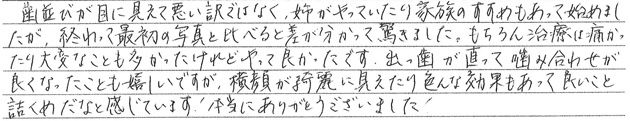 歯並びが目に見えて悪い訳ではなく、姉がやっていたり家族のすすめもあって始めまし
たが、終わって最初の写真と比べると差が分かって驚きました。もちろん治療は痛かっ
たり大変なことも多かったけれどやって良かったです。出っ歯が直って噛み合わせが
良くなったことも嬉しいですが、横顔が綺麗に見えたり色んな効果もあって良いこと
詰くめだなと感じています！本当にありがとうございました！